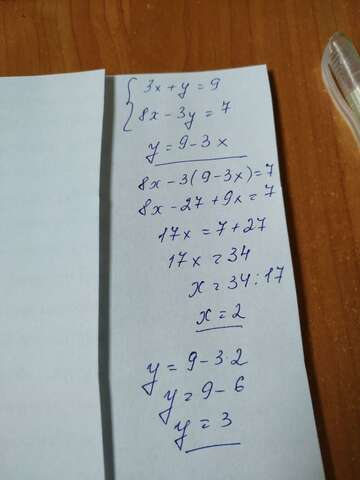 { 3x + y = 9
8x - 3y = 7
y = 9 - 3x
8x - 3(9 - 3x) = 7
8x - 27 + 9x = 7
17x = 7 + 27
17x = 34
x = 34 : 17
x = 2
y = 9 - 3·2
y = 9 - 6
y = 3